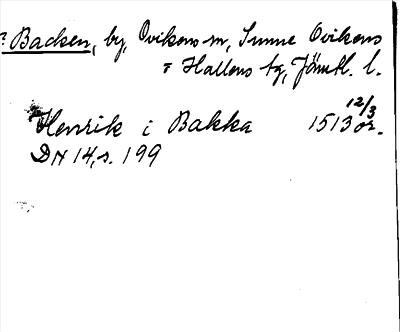 ? Backen, by, Ovikens sn, Sunne Ovikens
o Hallens tg, Jämtl. l.
12/3
Henrik i Bakka 1513 or.
DN 14, s. 199